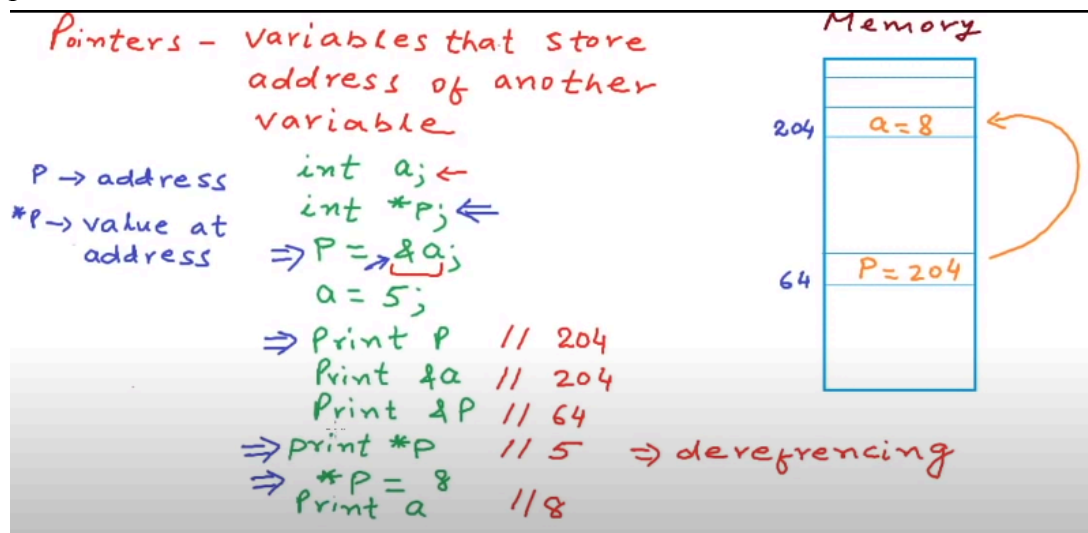 Pointers - variables that store
address of another
variable
P → address
*P → value at
address
int a; ←
int *P; ⇐
⇒ P = &a;
a = 5;
⇒ Print P // 204
Print &a // 204
Print &P // 64
⇒ print *P // 5 ⇒ derefrencing
⇒ *P = 8
Print a //8
Memory
204 a = 8
64 P = 204